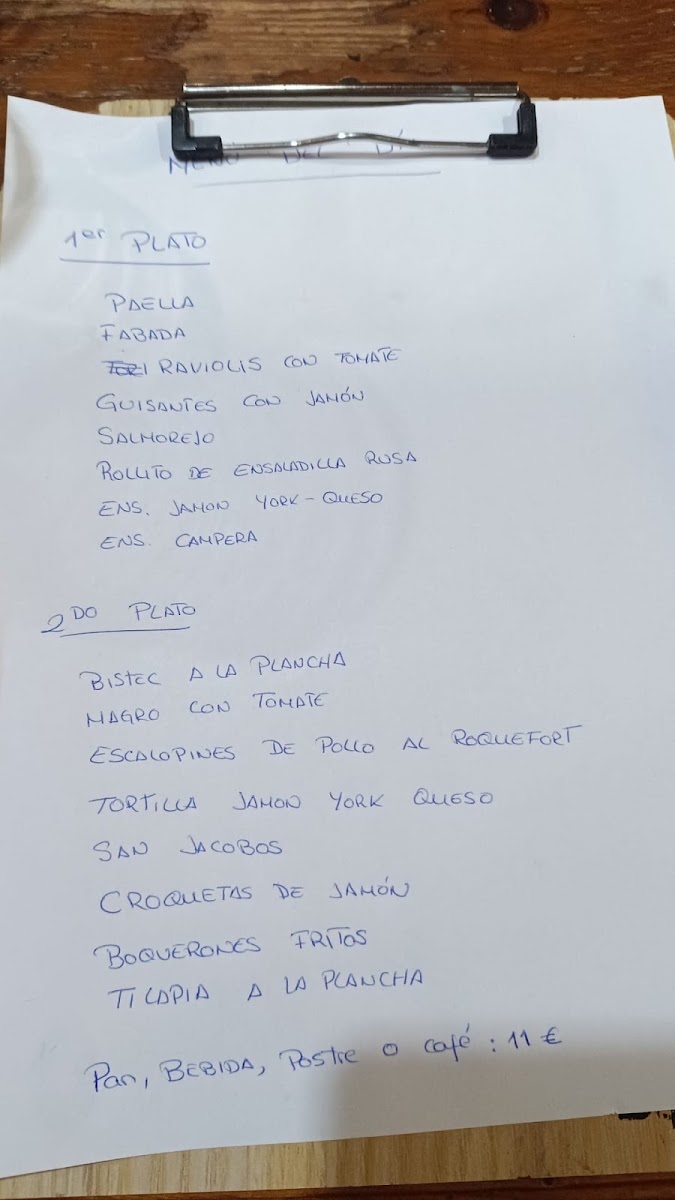 MENÚ DEL DÍ
1er PLATO
PAELLA
FABADA
RAVIOLIS CON TOMATE
GUISANTES CON JAMÓN
SALMOREJO
ROLLITO DE ENSALADILLA RUSA
ENS. JAMON YORK-QUESO
ENS. CAMPERA
2DO PLATO
BISTEC A LA PLANCHA
MAGRO CON TOMATE
ESCALOPINES DE POLLO AL ROQUEFORT
TORTILLA JAMON YORK QUESO
SAN JACOBOS
CROQUETAS DE JAMÓN
BOQUERONES FRITOS
TILAPIA A LA PLANCHA
Pan, BEBIDA, Postre o café : 11 €